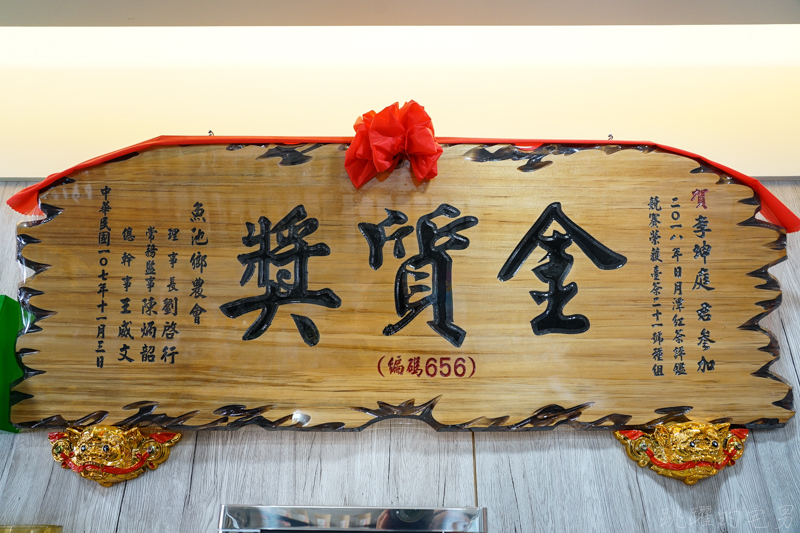 賀李紳庭君參加
二〇一八年日月潭紅茶評鑑
競賽榮獲臺茶二十一號種組
金質獎
(編碼656)
魚池鄉農會
理事長劉啓行
常務監事陳炳韶
總幹事王威文
中華民國一〇七年十一月三日